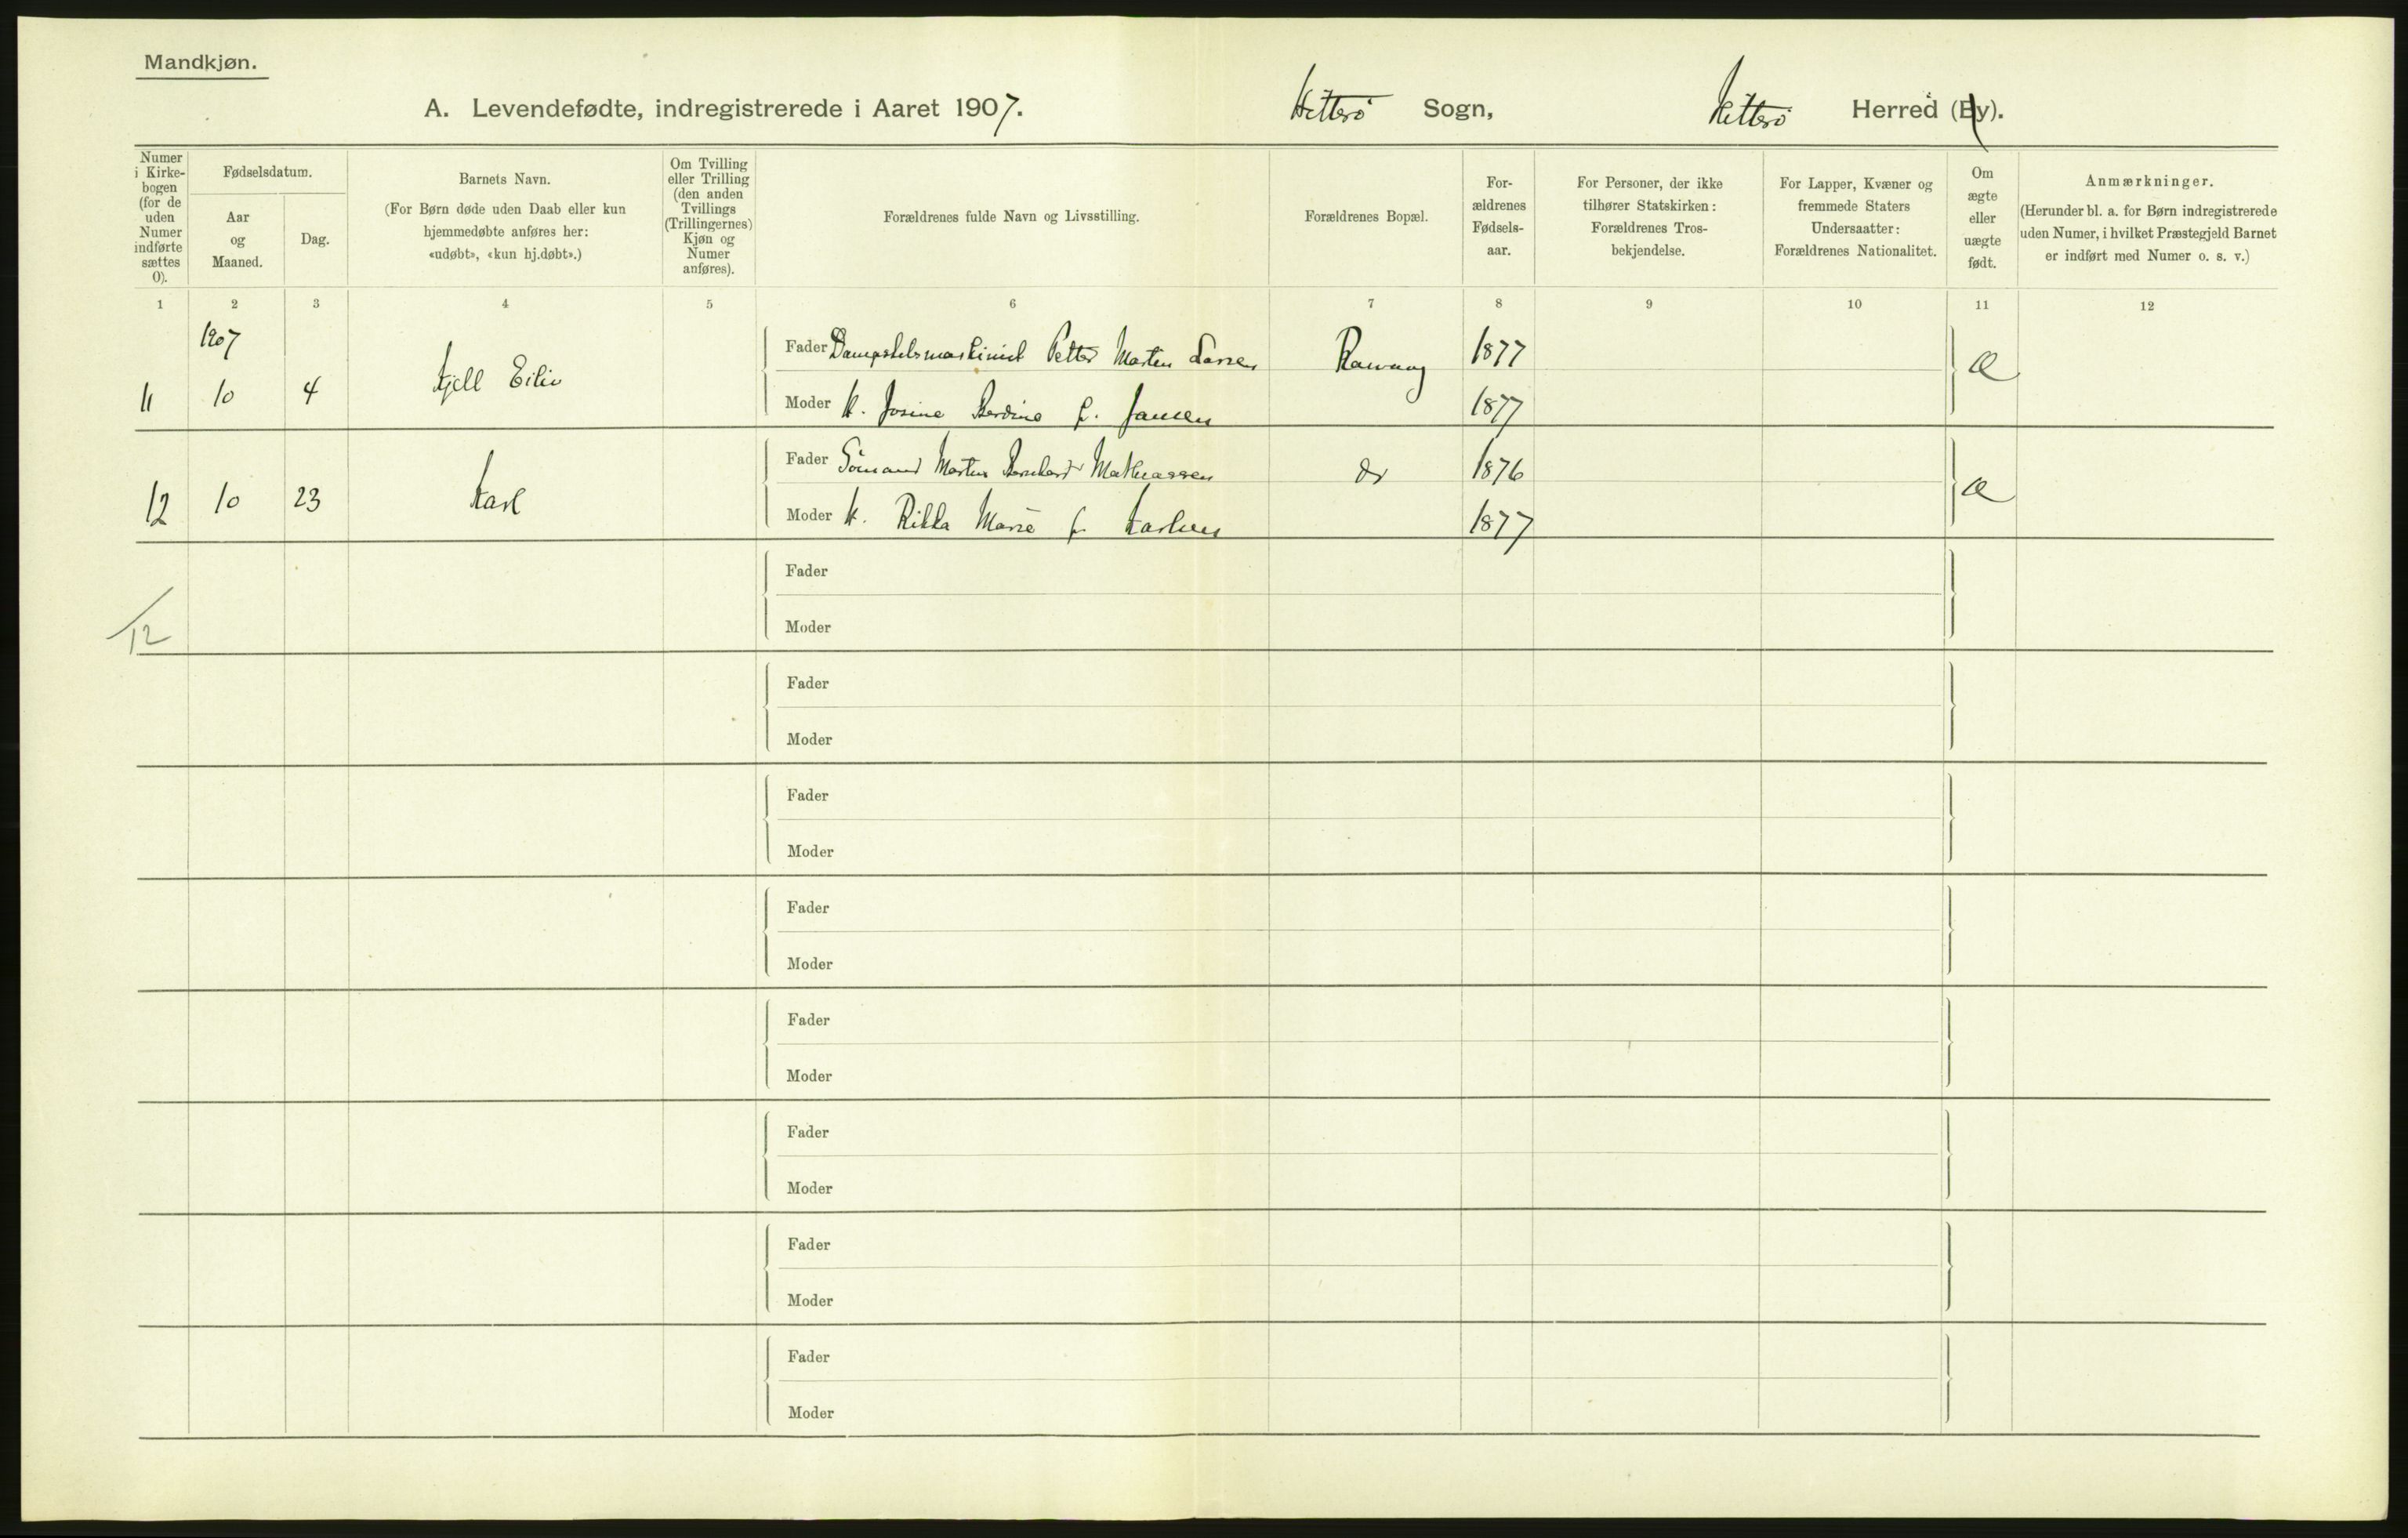 Mandkjøn.
A. Levendefødte, indregistrerede i Aaret 1907. Hitterö Sogn, Hitterö Herred (By).
Numer i Kirke-bogen (for de uden Numer indførte sættes 0).
Fødselsdatum.
Aar og Maaned.
Dag.
Barnets Navn.
(For Børn døde uden Daab eller kun
hjemmedøbte anføres her:
«udøbt», «kun hj.døbt».)
Om Tvilling
eller Trilling
(den anden
Tvillings
(Trillingernes)
Kjøn og
Numer
anføres).
Forældrenes fulde Navn og Livsstilling.
Forældrenes Bopæl.
For-
ældrenes
Fødsels-
aar.
For Personer, der ikke
tilhører Statskirken:
Forældrenes Tros-
bekjendelse.
For Lapper, Kvæner og
fremmede Staters
Undersaatter:
Forældrenes Nationalitet.
Om
ægte
eller
uægte
født.
Anmærkninger.
(Herunder bl. a. for Børn indregistrerede
uden Numer, i hvilket Præstegjeld Barnet
er indført med Numer o. s. v.)
1 2 3 4 5 6 7 8 9 10 11 12
1907
Fader Petter Martin Larsen 1877
11 10 4 Kjell Eiliv Æ
Moder K. Josine Berdine f. Jansen 1877
Fader Sömand Martin Bernhard Mathiassen do 1876
12 10 23 Karl Æ
Moder K. Rikka Marie f. Karlsen 1877
Fader
12
Moder
Fader
Moder
Fader
Moder
Fader
Moder
Fader
Moder
Fader
Moder
Fader
Moder
Fader
Moder